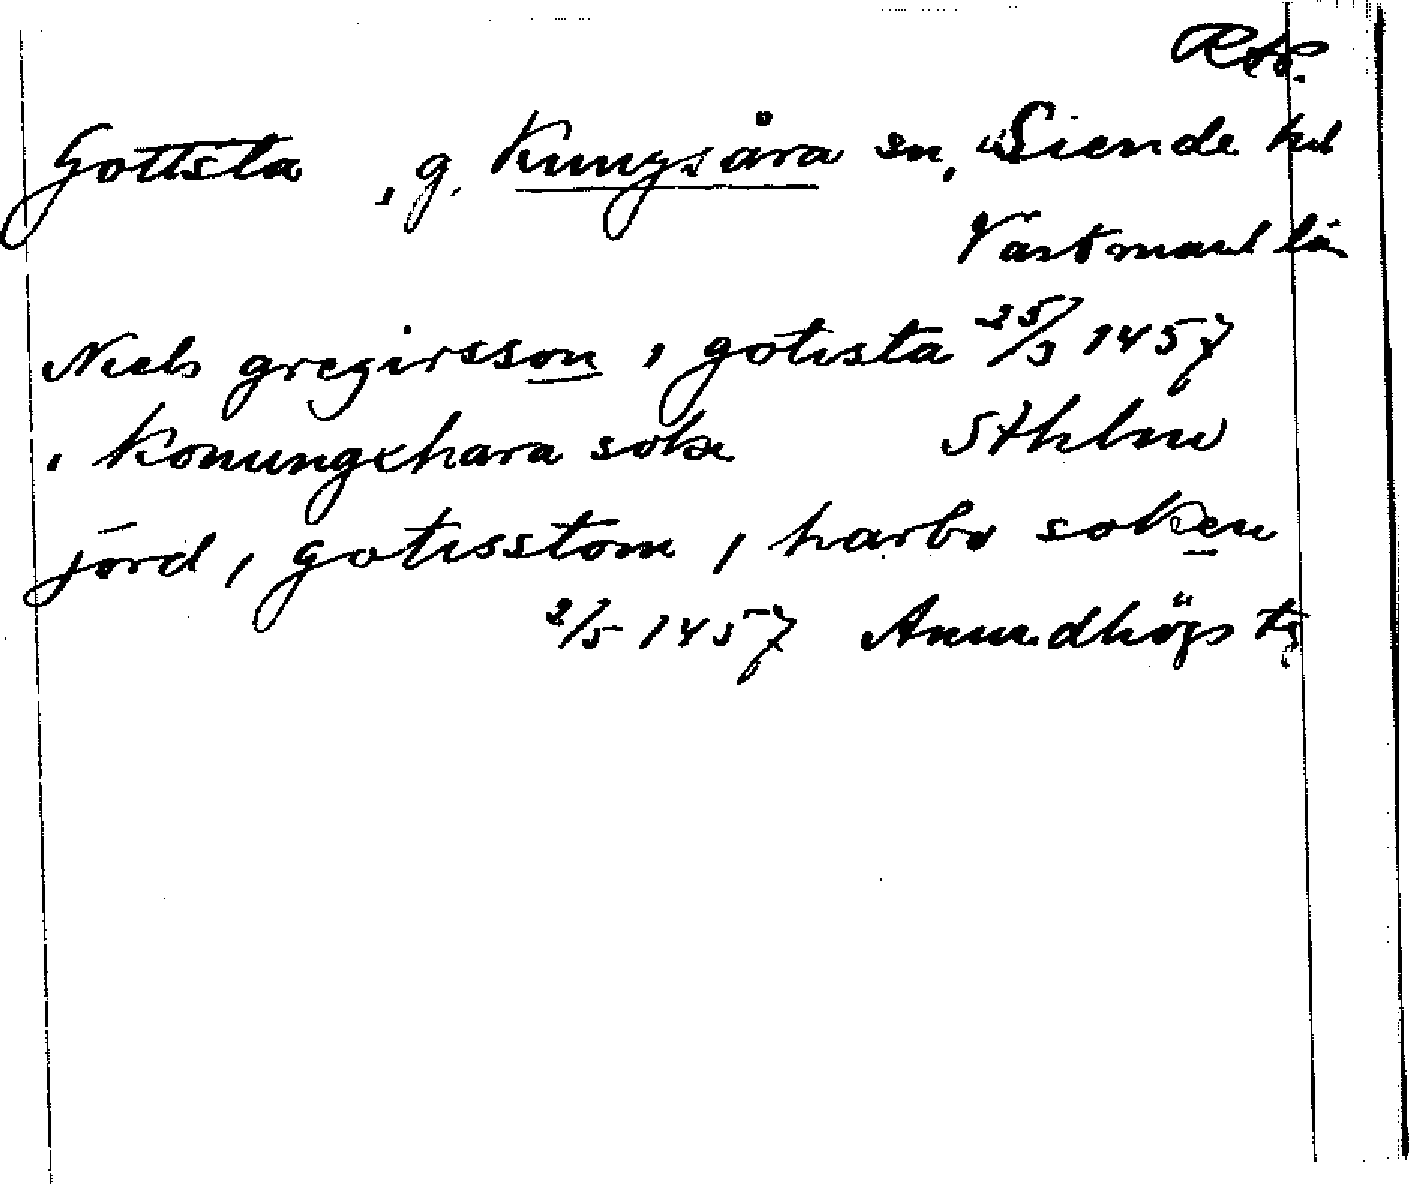 RAp.
Gottsta , g. Kungsåra sn, Siende hd
Västmanl län
Niels gregirsson i gotista 25/3 1457
i Konungxhara sokn Sthlm
jord i gotisstom i harbo soken
2/5 1457 Anundhögs tg